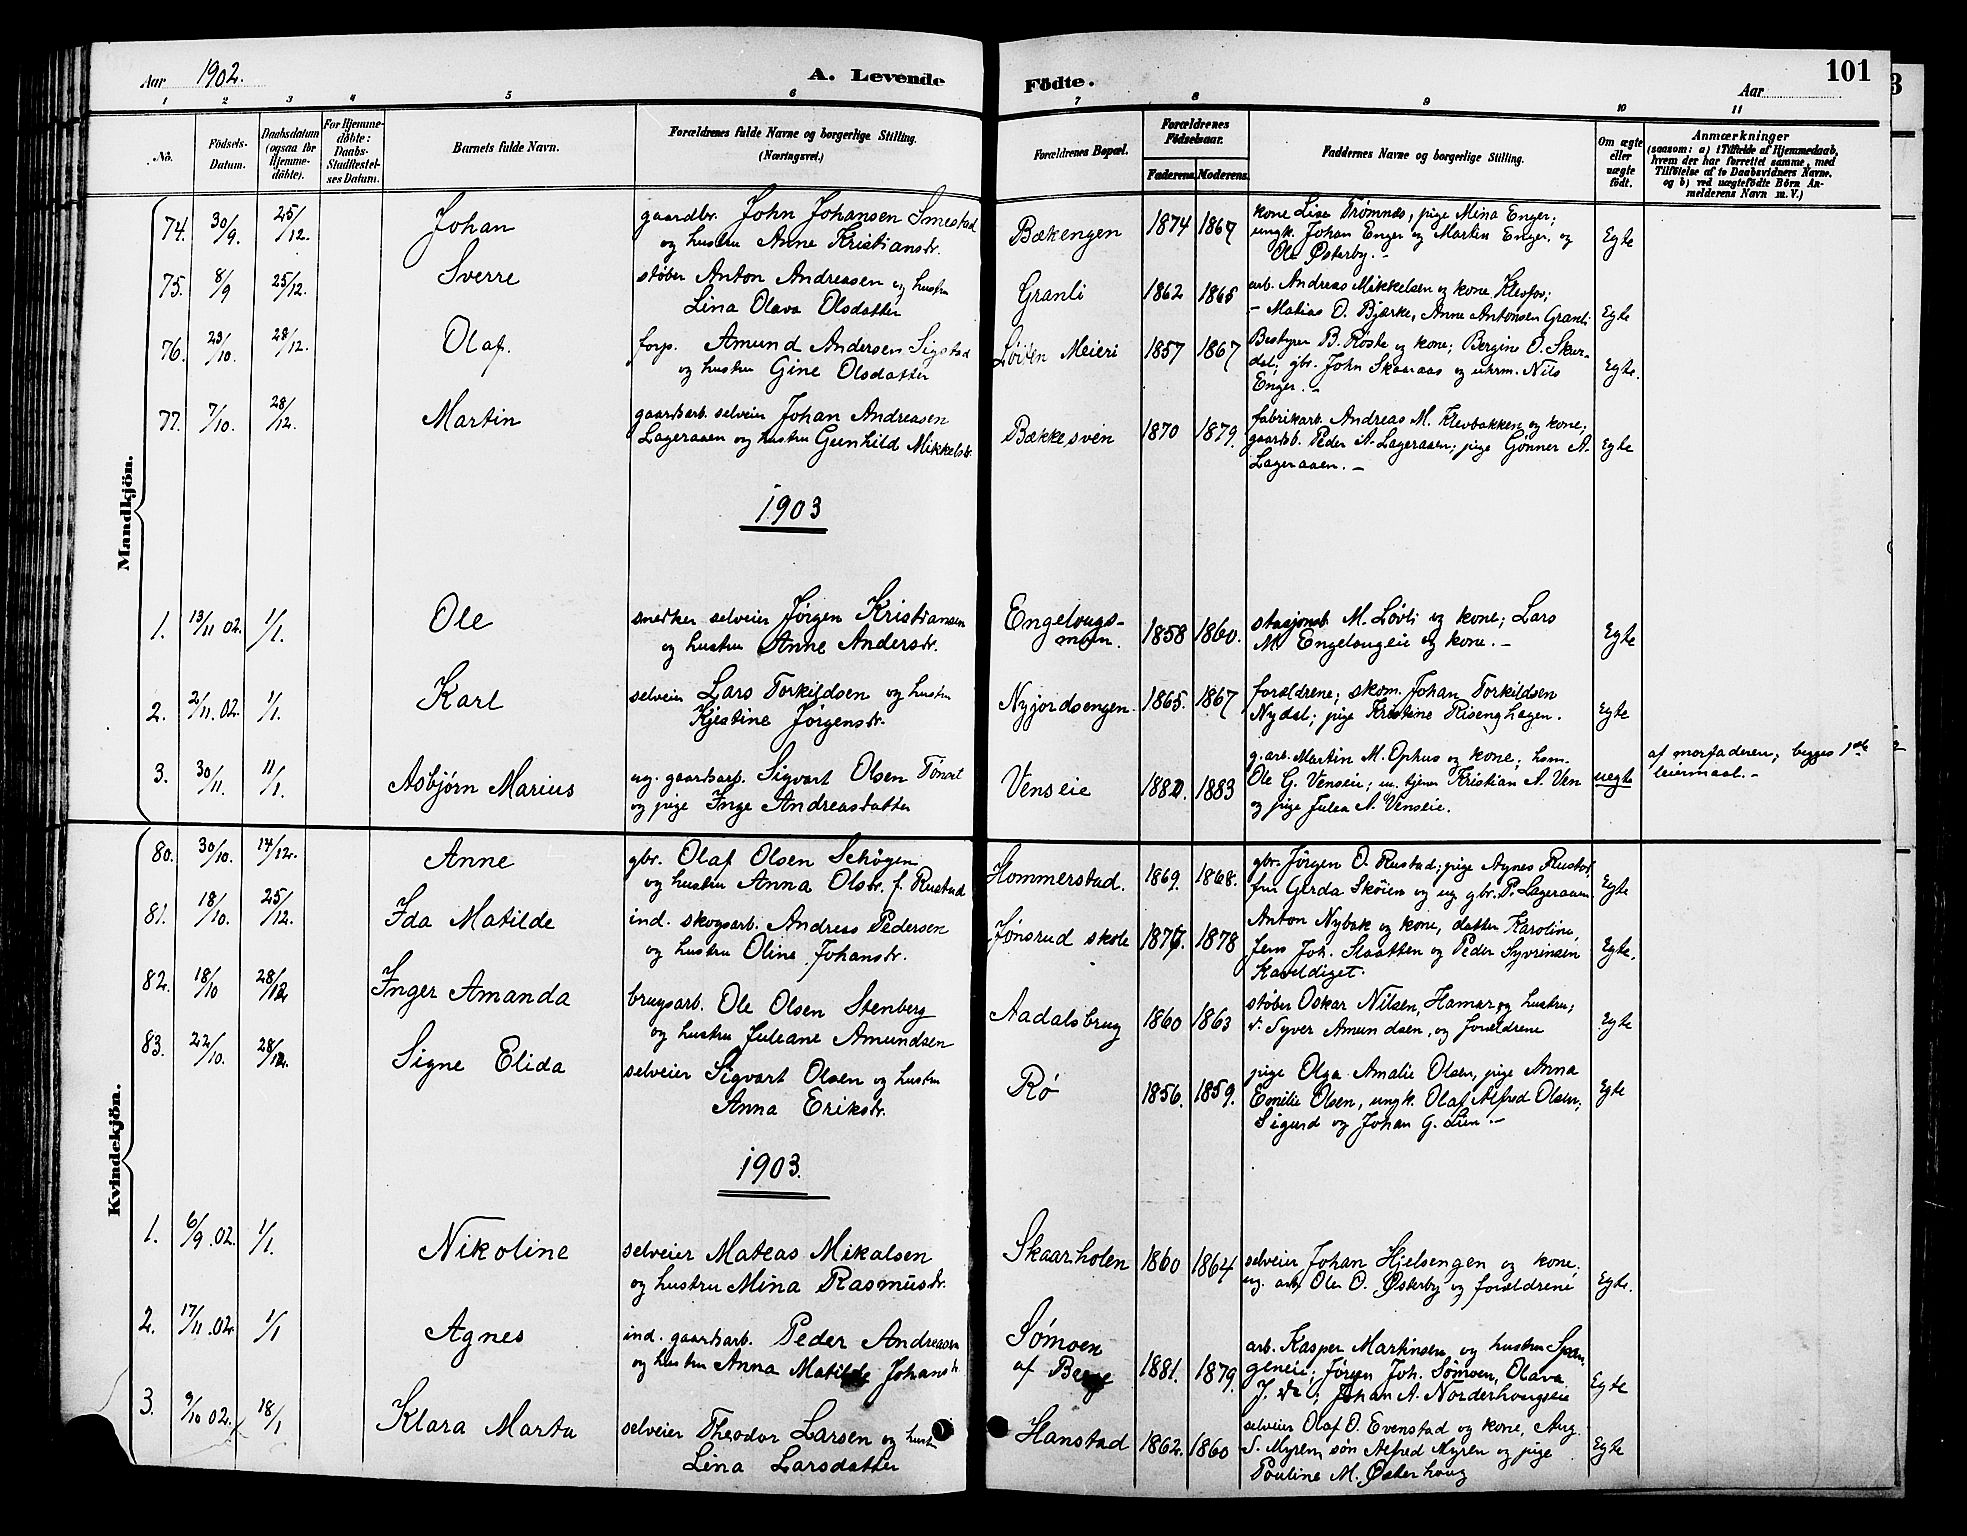 Aar 1902. A. Levende Födte. Aar 101
1 2 3 4 5 6 7 8 9 10 11
No. Födsels-Datum. Daabsdatum (ogsaa for Hjemmedöbte). For Hjemmedöbte: Daabs-Stadfæstelses Datum. Barnets fulde Navn. Forældrenes fulde Navne og borgerlige Stilling. (Næringsvei.) Forældrenes Bopæl. Forældrenes Födselsaar. Faderens. Moderens. Faddernes Navne og borgerlige Stilling. Om ægte eller uægte födt. Anmærkninger (saasom: a) i Tilfælde af Hjemmedaab, hvem der har forrettet samme, med Tilföielse af to Daabsvidners Navne, og b) ved uægtefödte Börn Anmelderens Navn m. V.)
Mandkjön.
74. 30/9. 25/12. Johan gaardbr. John Johansen Smestad
og hustru Anne Kristiansdr. Bækengen 1874 1867 kone Lise Trømnæs, pige Mina Enger;
ungk. Johan Enger og Martin Enger, og
Ole Østerby. - Egte
75. 8/9 25/12. Sverre støber Anton Andreasen og hustru
Lina Olava Olsdatter Granli 1862 1865 arb. Andreas Mikkelsen og kone Klevfos;
- Matias O. Bjærke, Anne Antonsen Granli Egte
76. 23/10. 28/12. Olaf. forp. Amund Andersen Sigstad
og hustru Gine Olsdatter Løiten Meieri 1857 1867 Bestyrer B. Røste og kone; Bergine O. Skur-
dal; gbr. John Skaaraas og uhrm. Nils
Enger. - Egte.
77. 7/10. 28/12. Martin gaardsarb. selveier Johan Andreasen
Lageraaen og hustru Gunhild Mikkelsdr. Bækkesvén 1870 1879. fabrikarb. Andreas M. Klevbakken og kone;
gaardb. Peder A. Lageraaen; pige Gønner A.
Lageraaen. - Egte
1903
1. 13/11 02. 1/1. Ole snedker selveier Jørgen Kristiansen
og hustru Anne Andersdr. Engelaugs-
moen. 1858 1860. stasjonsb. M. Løvli og kone; Lars
M. Engelaugeie og kone. - Egte
2. 2/11. 02. 1/1. Karl selveier Lars Torkildsen og hustru
Kjestine Jørgensdr. Nyjordsengen. 1865. 1867 forældrene; skom. Johan Torkildsen
Nydal; pige Kristine Risenghagen. Egte
3. 30/11. 11/1. Asbjørn Marius ug. gaardsarb. Sigvart Olsen Tønset
og pige Inga Andreasdatter Venseie 1882. 1883 g. arb. Martin M. Ophus og kone; hsm.
Ole G. Venseie; u. tjener Kristian A. Ven
og pige Julea A. Venseie. uegte af morfaderen; begges 1ste
leiermaal. -
Kvindekjön.
80. 30/10. 14/12. Anne gbr. Olaf Olsen Schøgen
og hustru Anna Olsdr. f. Rustad Hommerstad. 1869. 1868. gbr. Jørgen O. Rustad; pige Agnes Rustad
fru Gerda Skøien og ug gbr. P. Lageraaen Egte
81. 18/10. 25/12. Ida Matilde ind. skogsarb. Andreas Pedersen
og hustru Oline Johansdr. Jønsrud skole 1876. 1878 Anton Nybak og kone, datter Karoline,
Jens Joh. Slaatten og Peder Syvrinsen
Kaveldiget. Egte.
82. 18/10 28/12 Inger Amanda brugsarb. Ole Olsen Stenberg
og hustru Juleane Amundsen Aadalsbrug 1860 1863 støber Oskar Nilsen, Hamar og hustru;
s. Syver Amundsen, og forældrene Egte
83. 22/10. 28/12. Signe Elida selveier Sigvart Olsen og hustru
Anna Eriksdr. Rø 1856. 1859. pige Olga Amalie Olsen, pige Anna
Emilie Olsen, ungk. Olaf Alfred Olsen;
Sigurd og Johan G. Lien - Egte
1903.
1. 6/9. 02. 1/1. Nikoline selveier Mateas Mikalsen
og hustru Mina Rasmusdr. Skaarholen 1860 1864 selveier Johan Hjelsengen og kone,
ug. arb. Ole O. Østerby og forældrene Egte.
2. 17/11. 02. 1/1 Agnes ind. gaardsarb. Peder Andreasen
og hustru Anna Matilde Johansdr. Sømoen
af Berge 1881. 1879. arb. Kasper Martinsen og hustru Span-
geneie; Jørgen Joh. Sømoen, Olava
J. do; Johan A. Norderhougseie Egte
3. 9/10 02. 18/1 Klara Marta selveier Theodor Larsen og hustru
Lina Larsdatter Hanstad 1862. 1860 selveier Olaf O. Evenstad og kone, Aug.
S. Myren, søn Alfred Myren og pige
Pauline M. Østerhaug Egte